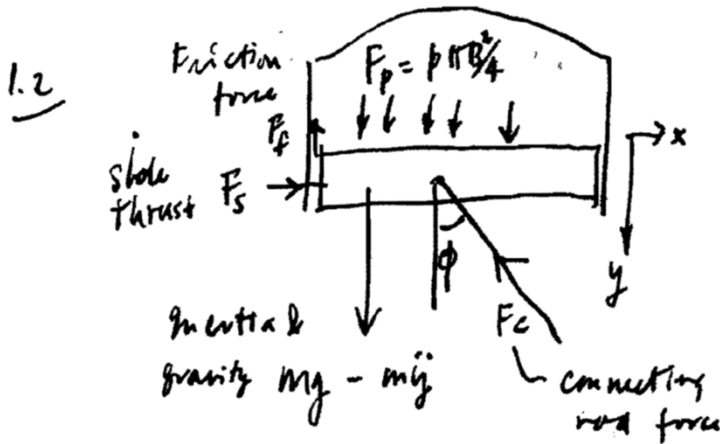 1.2
Friction
force
F_f
F_p = p π B²/4
x
side
thrust F_s
y
ϕ
F_c
inertial &
gravity mg - mÿ
connecting
rod force